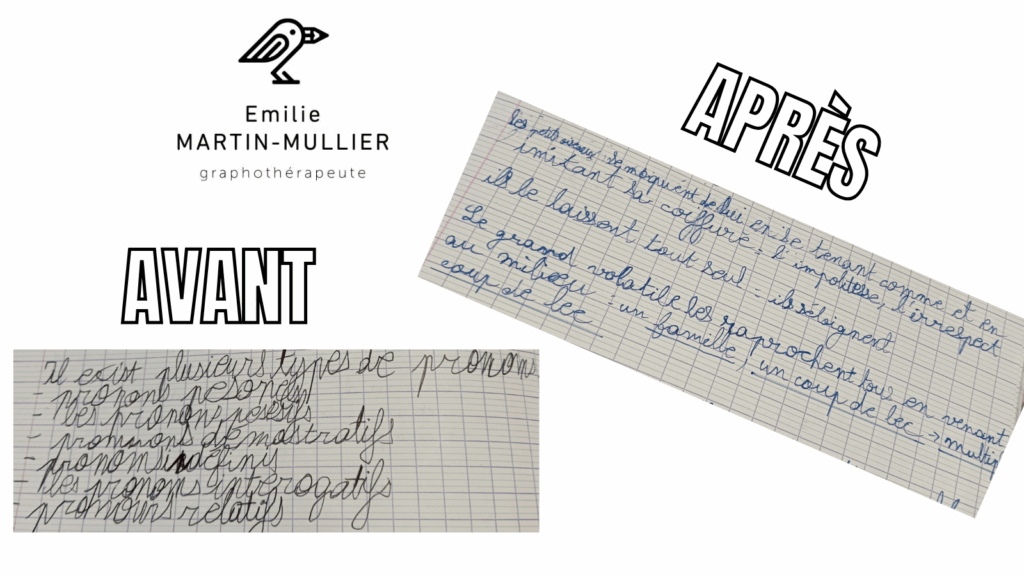 Emilie
MARTIN-MULLIER
graphothérapeute
AVANT
Il exist plusieurs types de pronoms
- pronons pesonels
- les pronons posesifs
- pronuons démostratifs
- pronoms indéfinis
- les pronoms intérogatifs
- pronours relatifs
APRÈS
les petits oiseaux se moquent de lui en se tenant comme et en
imitant sa coiffure : l'impolitesse, l'irrespect
ils le laissent tout seul = ils s'éloignent
Le grand volatile les raprochent tous en venant
au milieu : un famille, un coup de bec → multip
coup de bec